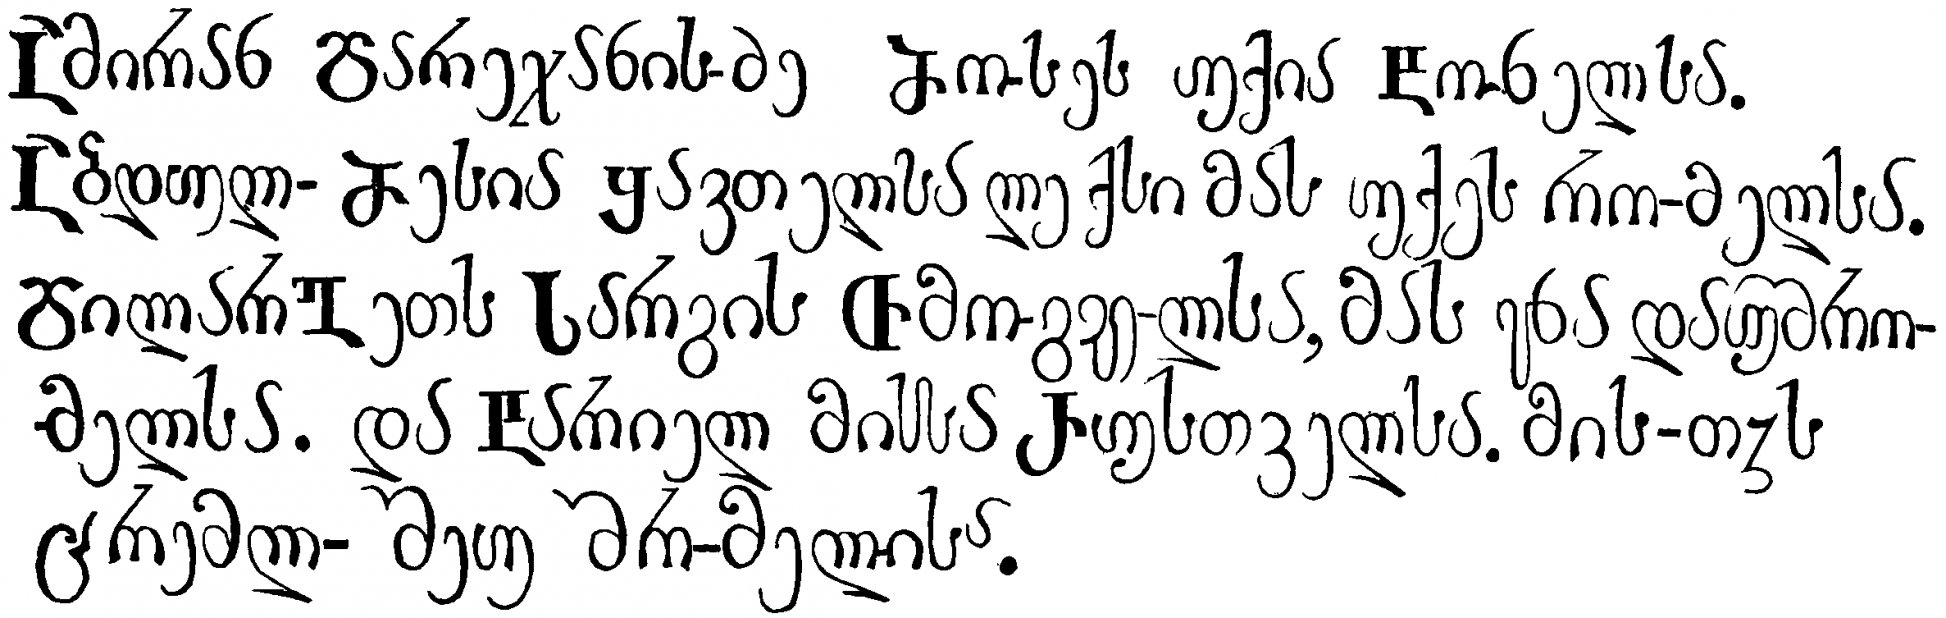 ამირან დარეჯანის-ძე მო-სეს უქია ხო-ნელსა.
აბდულ- მესია შავთელსა ლექსი მას უქეს რო-მელსა.
დილარგეთს სარგის თმო-გვე-ლსა, მას ენა დაუშრო-
მელსა. და ტარიელ მისსა რუსთველსა. მის-თჳს
ცრემლ- შეუ შრ-მელისა.